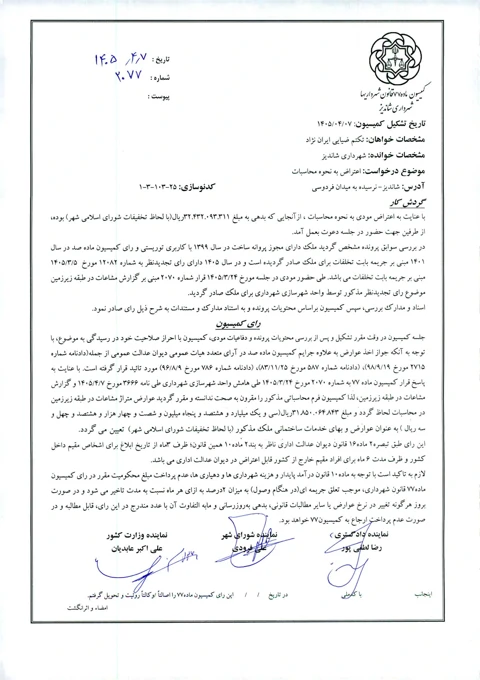 تاریخ : ۱۴۰۵/۴/۷
شماره : ۲۰۷۷
پیوست :
کمیسیون ماده ۷۷ قانون شهرداریها
شهرداری شاندیز
تاریخ تشکیل کمیسیون: ۱۴۰۵/۰۴/۰۷
مشخصات خواهان: تکتم ضیایی ایران نژاد
مشخصات خوانده: شهرداری شاندیز
موضوع درخواست: اعتراض به نحوه محاسبات
آدرس: شاندیز- نرسیده به میدان فردوسی
کدنوسازی: ۲۵-۱۰۳-۳-۱
گردش کار
با عنایت به اعتراض مودی به نحوه محاسبات ، ازآنجایی که بدهی به مبلغ ۳۲.۴۳۲.۰۹۳.۳۱۱ریال(با لحاظ تخفیفات شورای اسلامی شهر) بوده،
از طرفین جهت حضور در جلسه دعوت بعمل آمد.
در بررسی سوابق پرونده مشخص گردید ملک دارای مجوز پروانه ساخت در سال ۱۳۹۹ با کاربری توریستی و رای کمیسیون ماده صد در سال
۱۴۰۱ مبنی بر جریمه بابت تخلفات برای ملک صادر گردیده است و در سال ۱۴۰۵ دارای رای تجدیدنظر به شماره ۱۲۰۸۲ مورخ ۱۴۰۵/۳/۵
مبنی بر جریمه بابت تخلفات می باشد. طی حضور مودی در جلسه مورخ ۱۴۰۵/۳/۲۴ قرار شماره ۲۰۷۰ مبنی بر گزارش مشاعات در طبقه زیرزمین
موضوع رای تجدیدنظر مذکور توسط واحد شهرسازی شهرداری برای ملک صادر گردید.
اسناد و مدارک بررسی، سپس کمیسیون براساس محتویات پرونده و به استناد مدارک و مستندات به شرح ذیل رای صادر نمود.
رای کمیسیون
جلسه کمیسیون در وقت مقرر تشکیل و پس از بررسی محتویات پرونده و دفاعیات مودی، کمیسیون با احراز صلاحیت خود در رسیدگی به موضوع، با
توجه به آنکه جواز اخذ عوارض به علاوه جرایم کمیسیون ماده صد در آرای متعدد هیات عمومی دیوان عدالت عمومی از جمله(دادنامه شماره
۲۷۱۵ مورخ ۹۸/۹/۱۹)، (دادنامه شماره ۵۸۷ مورخ ۸۳/۱۱/۲۵)، (دادنامه شماره ۷۸۶ مورخ ۹۶/۸/۹) مورد تائید قرار گرفته است. با عنایت به
پاسخ قرار کمیسیون ماده ۷۷ به شماره ۲۰۷۰ مورخ ۱۴۰۵/۳/۲۴ طی هامش واحد شهرسازی شهرداری طی نامه ۳۶۶۶ مورخ ۱۴۰۵/۴/۷ و گزارش
مشاعات در طبقه زیرزمین، لذا کمیسیون فرم محاسباتی مذکور را مقرون به صحت ندانسته و مقرر گردید عوارض متراژ مشاعات در طبقه زیرزمین
در محاسبات لحاظ گردد و مبلغ ۳۱.۸۵۰.۰۶۴.۸۴۳ریال(سی و یک میلیارد و هشتصد و پنجاه میلیون و شصت و چهار هزار و هشتصد و چهل و
سه ریال ) به عنوان عوارض و بهای خدمات ساختمانی ملک مذکور (با لحاظ تخفیفات شورای اسلامی شهر) تعیین می گردد.
این رای طبق تبصره۲ ماده۱۶ قانون دیوان عدالت اداری ناظر به بند۲ ماده۱۰ همین قانون؛ ظرف ۳ماه از تاریخ ابلاغ برای اشخاص مقیم داخل
کشور و ظرف مدت ۶ ماه برای افراد مقیم خارج از کشور قابل اعتراض در دیوان عدالت اداری می باشد.
لازم به تاکید است با توجه به ماده۱۰ قانون درآمد پایدار و هزینه شهرداری ها و دهیاری ها، عدم پرداخت مبلغ محکومیت مقرر در رای کمیسیون
ماده۷۷ قانون شهرداری، موجب تعلق جریمه ای(در هنگام وصول) به میزان ۲درصد به ازای هر ماه نسبت به مدت تاخیر می شود و در صورت
بروز هرگونه تغییر در نرخ عوارض یا سایر مطالبات قانونی، بدهی به‌روزرسانی و مابه التفاوت آن با عدد مندرج در این رای، قابل مطالبه و در
صورت عدم پرداخت ارجاع به کمیسیون۷۷ خواهد بود.
نماینده دادگستری
نماینده شورای شهر
نماینده وزارت کشور
رضا لطفی پور
علی فرودی
علی اکبر عابدیان
اینجانب با کدملی در تاریخ / / این رای کمیسیون ماده۷۷ را اصالتاً /وکالتاً رؤیت و تحویل گرفتم.
امضاء و اثرانگشت